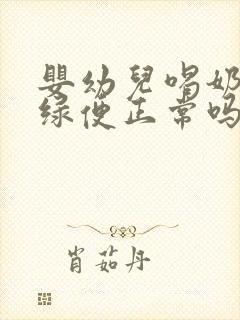 嬰幼兒喝奶
绿便正常吗
肖茹丹